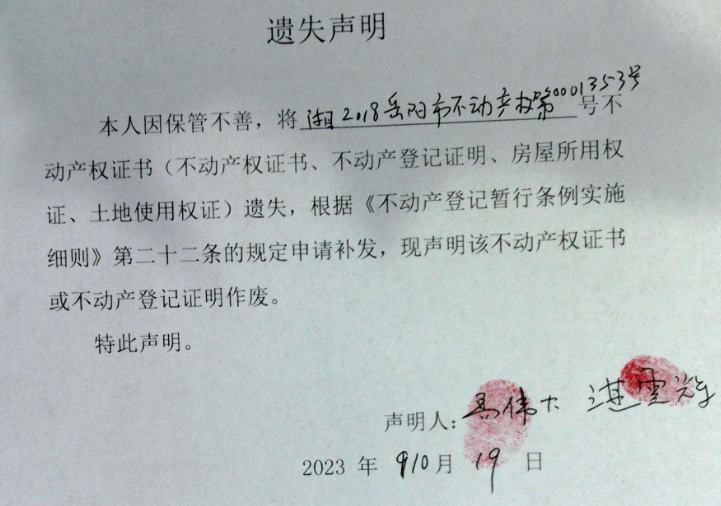 遗失声明
本人因保管不善，将 湘2018岳阳市不动产权第0001353号 号不
动产权证书（不动产权证书、不动产登记证明、房屋所用权
证、土地使用权证）遗失，根据《不动产登记暂行条例实施
细则》第二十二条的规定申请补发，现声明该不动产权证书
或不动产登记证明作废。
特此声明。
声明人：易伟大
2023 年 10月 19 日